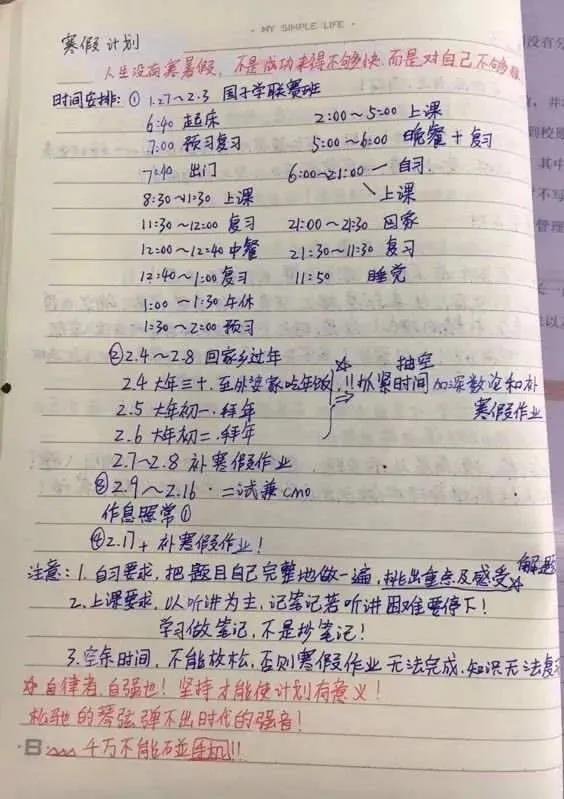 MY SIMPLE LIFE
寒假计划
人生没有寒暑假，不是成功来得不够快，而是对自己不够狠
时间安排：① 1.27～2.3 国子学联赛班
6:40 起床
2:00～5:00 上课
7:00 预习复习
5:00～6:00 晚餐+复习
7:40 出门
6:00～21:00 自习
上课
8:30～11:30 上课
11:30～12:00 复习
21:00～21:30 回家
12:00～12:40 中餐
21:30～11:30 复习
12:40～1:00 复习
11:50 睡觉
1:00～1:30 午休
1:30～2:00 预习
② 2.4～2.8 回家乡过年
2.4 大年三十，至外婆家吃年饭
2.5 大年初一，拜年
2.6 大年初二，拜年
☆ 抽空
!!抓紧时间加深数论和补
寒假作业
2.7～2.8 补寒假作业
③ 2.9～2.16 二试兼CMO
作息照常①
④ 2.17+ 补寒假作业！
注意：1. 自习要求，把题目自己完整地做一遍，挑出重点及感受☆解题
2. 上课要求，以听讲为主，记笔记若听讲困难要停下！
学习做笔记，不是抄笔记！
3. 空余时间，不能放松，否则寒假作业无法完成，知识无法复
☆自律者，自强也！坚持才能使计划有意义！
松弛的琴弦弹不出时代的强音！
千万不能碰手机!!